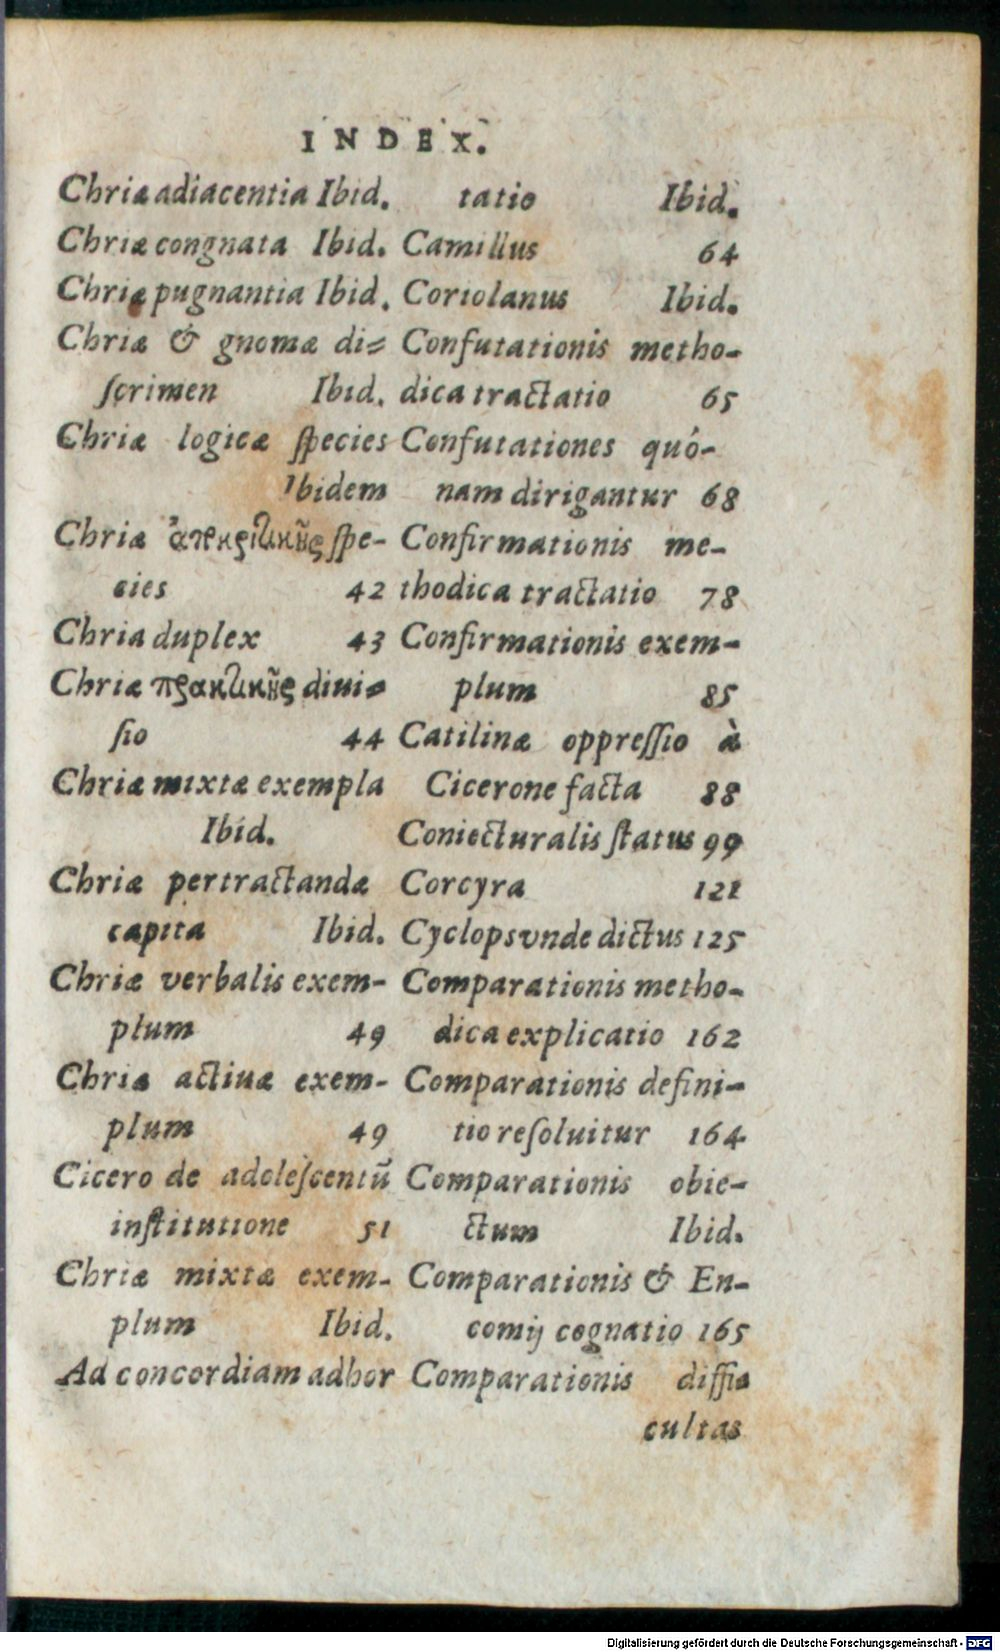 INDEX.
Chriæ adiacentia Ibid.
Chriæ congnata Ibid.
Chriæ pugnantia Ibid.
Chriæ & gnomæ di-
scrimen Ibid.
Chriæ logicæ species
Ibidem
Chriæ spe-
cies 42
Chria duplex 43
Chriæ πρακτικῆς diui-
sio 44
Chriæ mixtæ exempla
Ibid.
Chriæ pertractandæ
capita Ibid.
Chriæ verbalis exem-
plum 49
Chriæ actiuæ exem-
plum 49
Cicero de adolescentũ
institutione 51
Chriæ mixtæ exem-
plum Ibid.
Ad concordiam adhor
tatio Ibid.
Camillus 64
Coriolanus Ibid.
Confutationis metho-
dica tractatio 65
Confutationes quó-
nam dirigantur 68
Confirmationis me-
thodica tractatio 78
Confirmationis exem-
plum 85
Catilinæ oppressio à
Cicerone facta 88
Coniecturalis status 99
Corcyra 121
Cyclops vnde dictus 125
Comparationis metho-
dica explicatio 162
Comparationis defini-
tio resoluitur 164
Comparationis obie-
ctum Ibid.
Comparationis & En-
comij cognatio 165
Comparationis diffi-
cultas
Digitalisierung gefördert durch die Deutsche Forschungsgemeinschaft - DFG